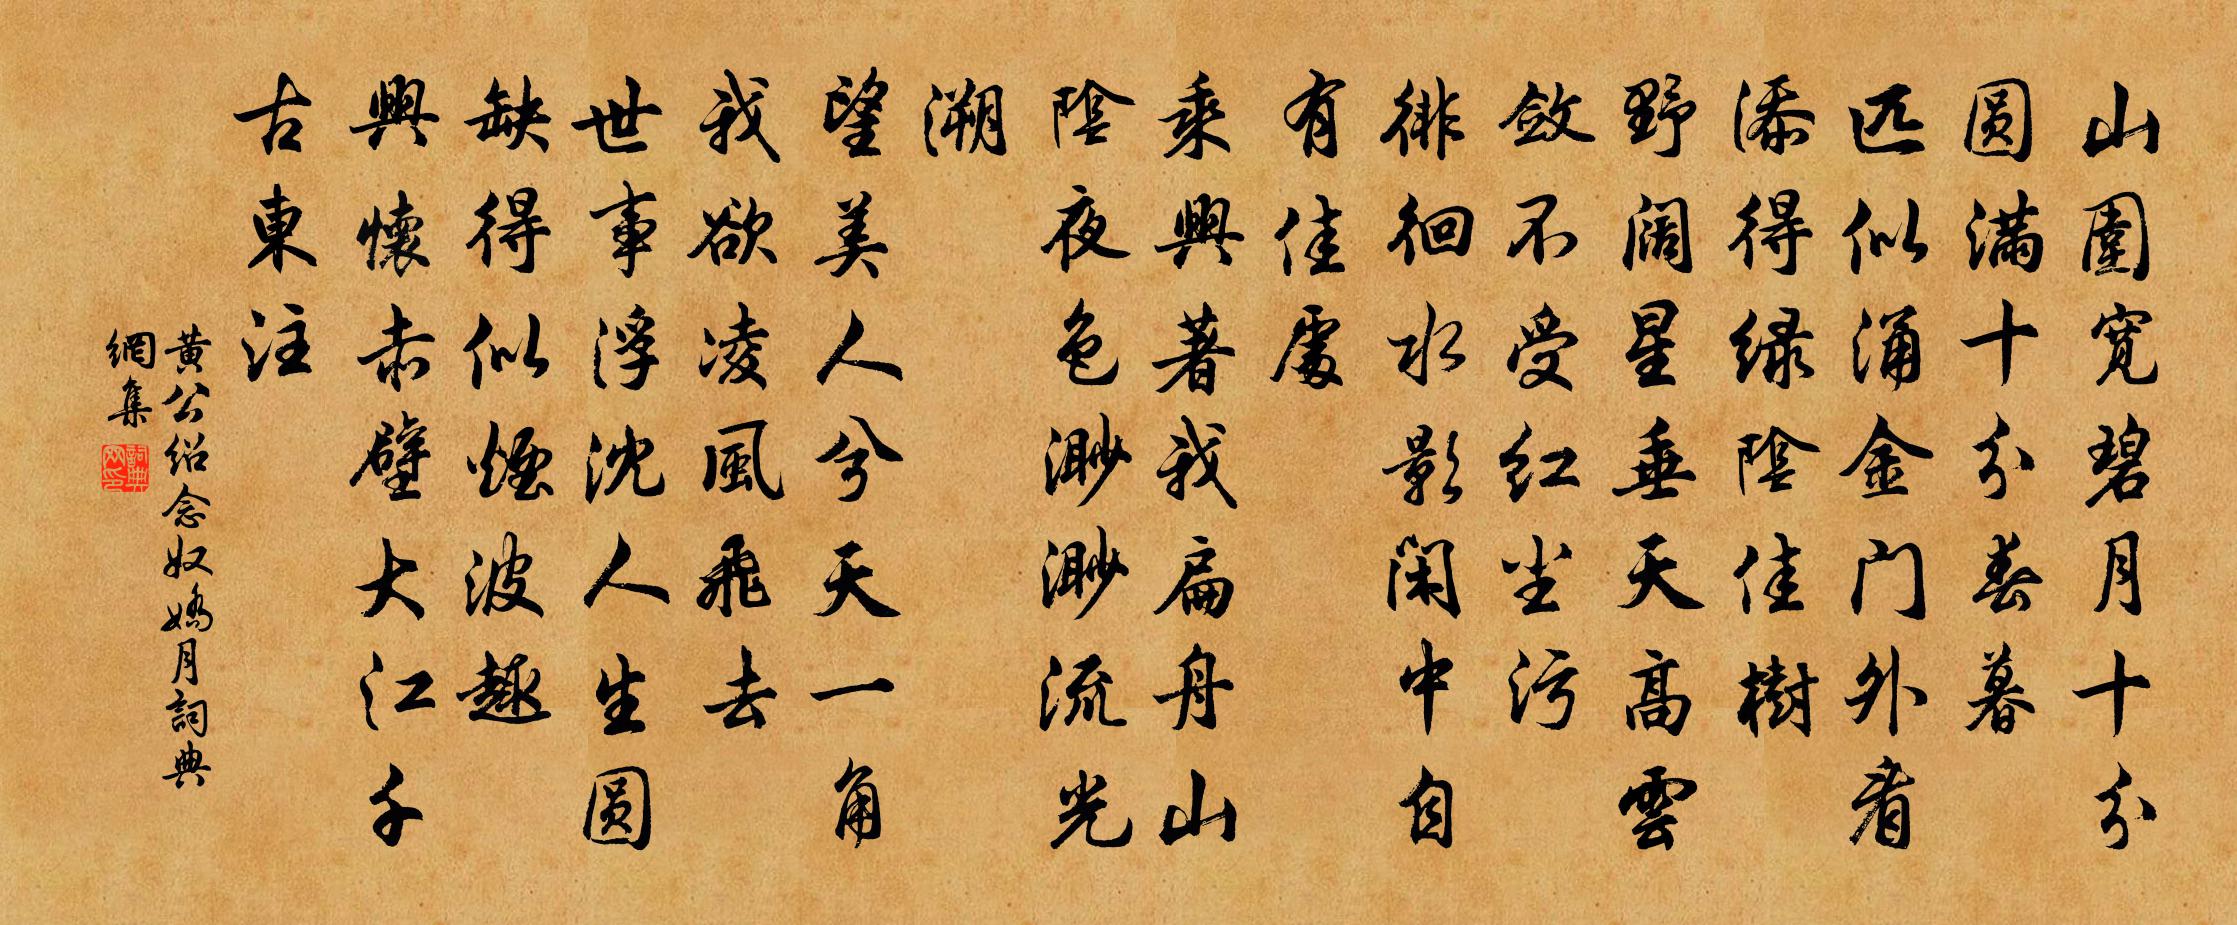 山圍寬碧月十分
圆滿十分春暮
匹似涌金门外看
添得绿陰佳樹
野阔星垂天高雲
敛不受红尘污
徘徊水影闲中自
有佳處
乘興著我扁舟山
陰夜色渺渺流光
溯
望美人兮天一角
我欲凌風飛去
世事浮沈人生圆
缺得似煙波趣
興懷赤壁大江千
古東注
黄公绍念奴嬌月詞典
網集
詞典
网印